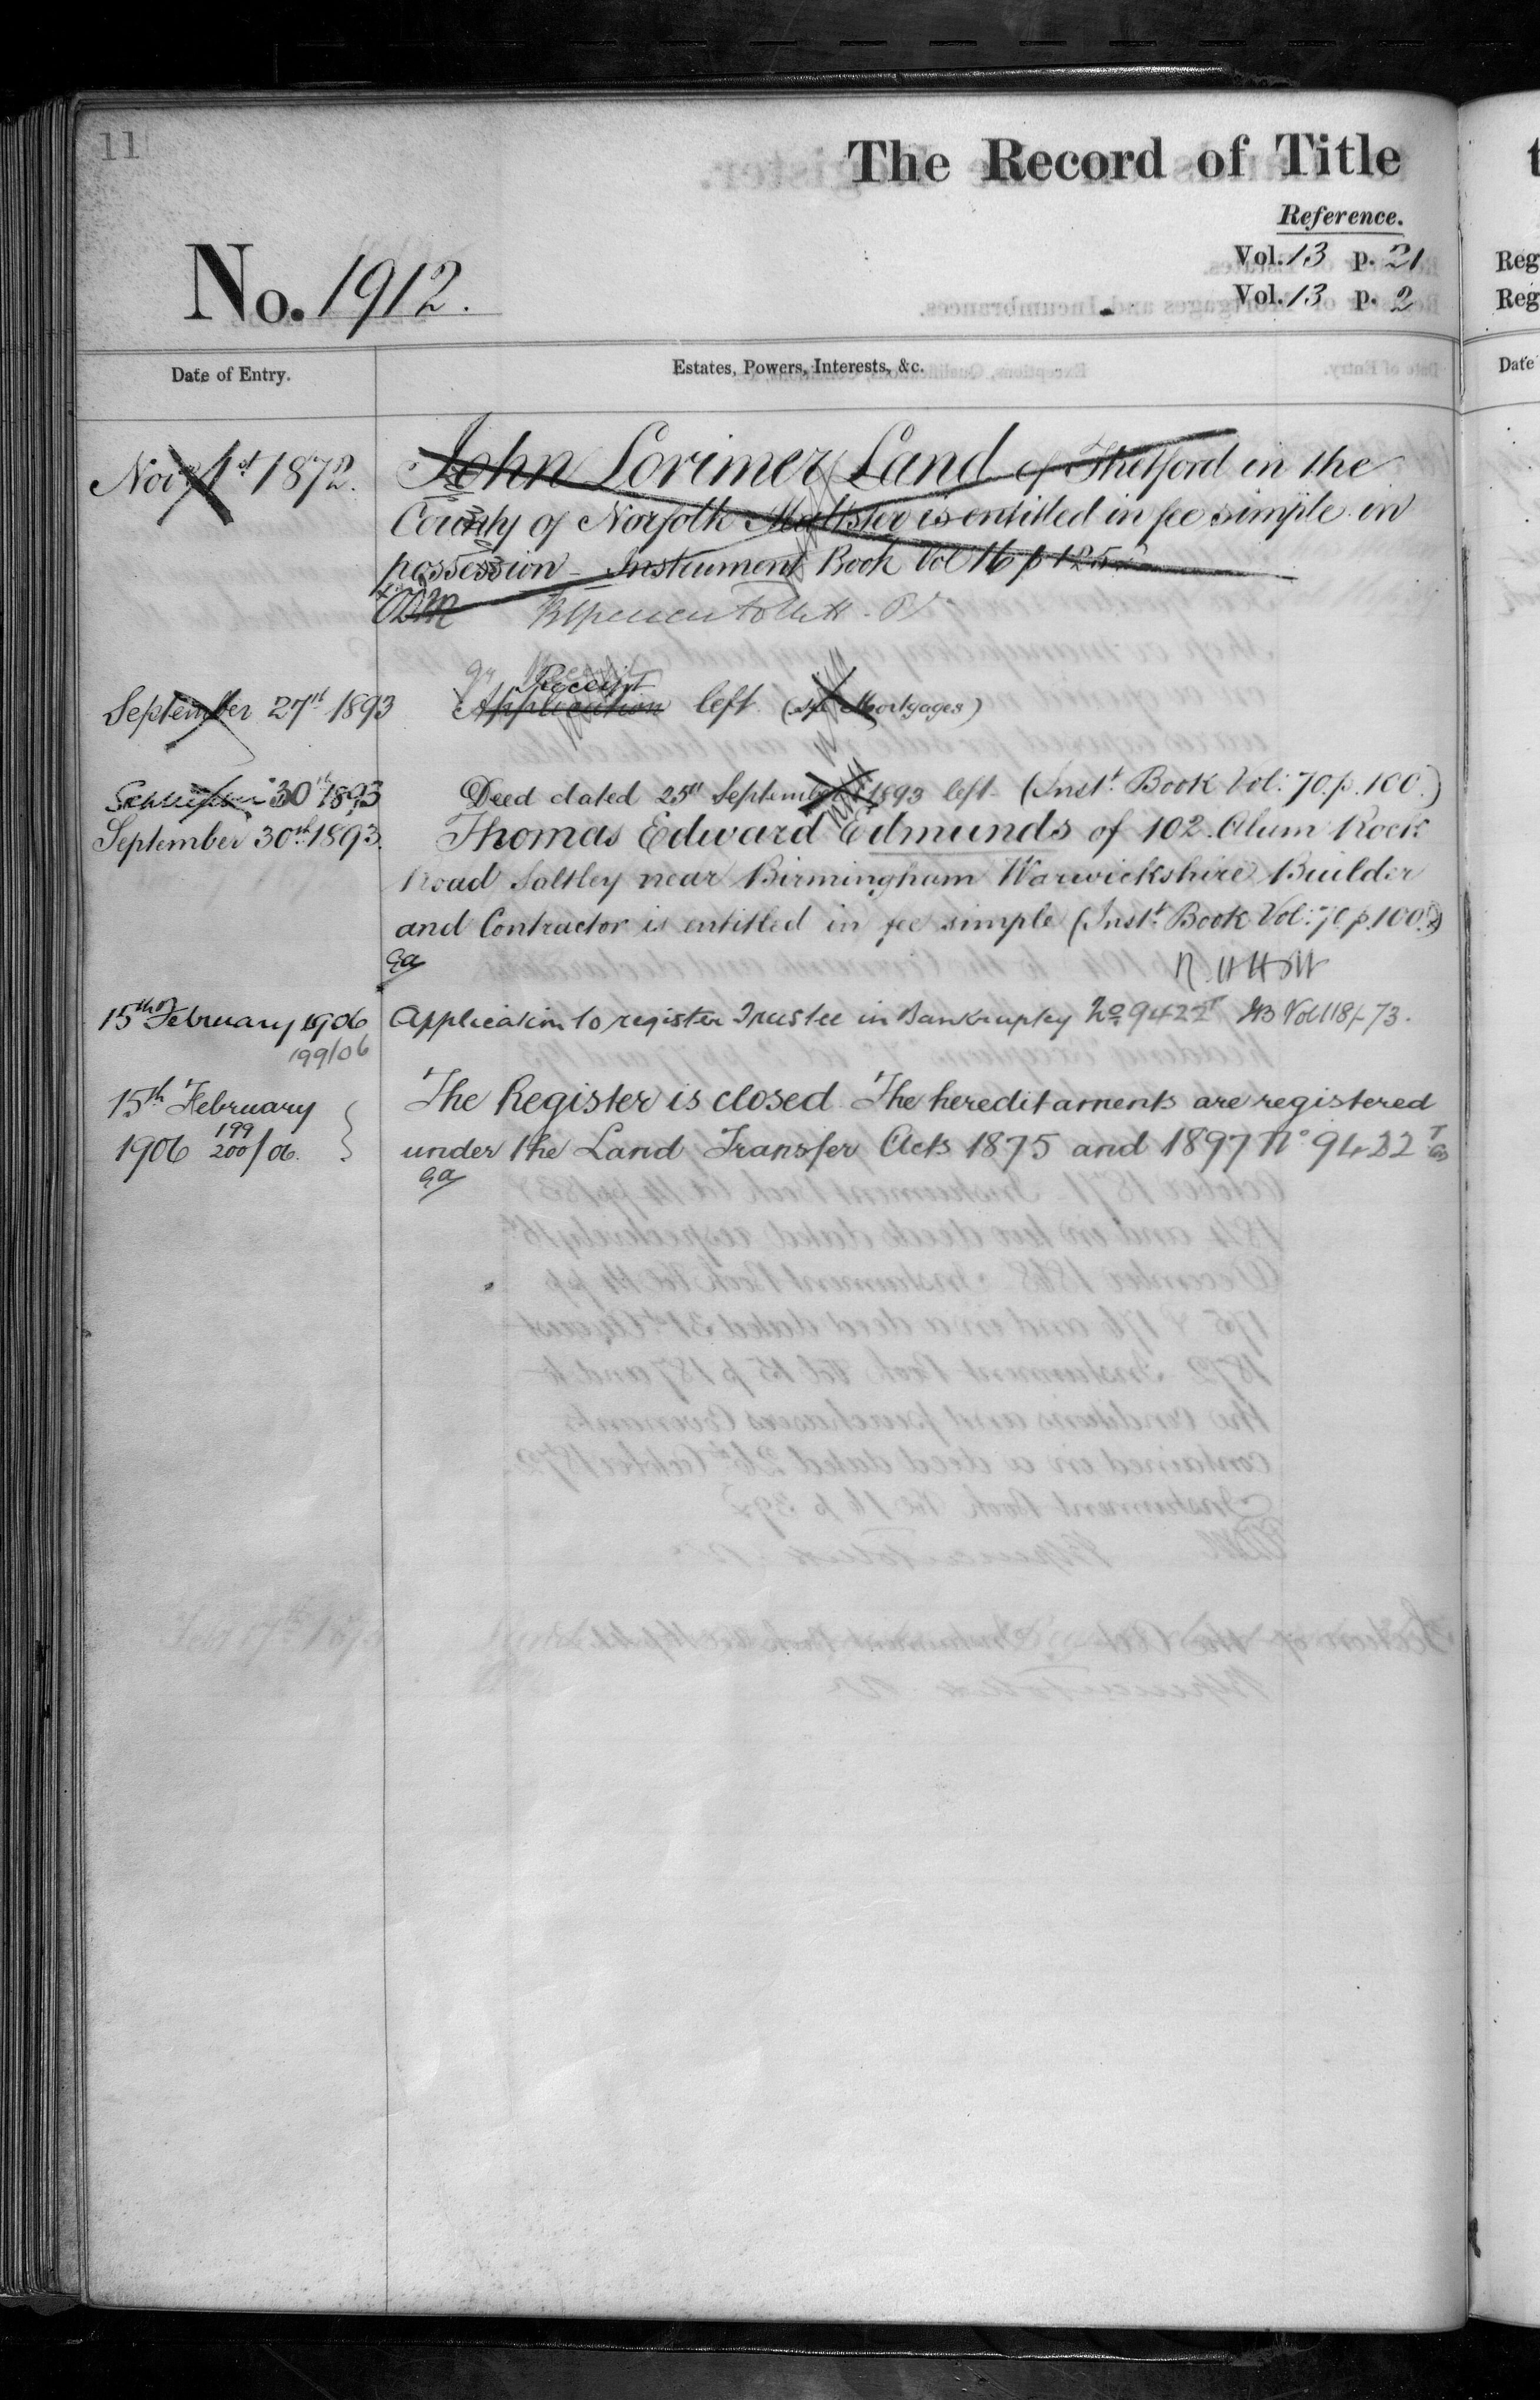 11
The Record of Title
Reference.
Vol. 13 p. 21
Vol. 13 p. 2
No. 1912.
Date of Entry.
Estates, Powers, Interests, &c.
Novr 1st 1872.
John Lorimer Land of Thetford in the
County of Norfolk Maltster is entitled in fee simple in
possession - Instrument Book Vol 16 p 125
Receipt
September 27th 1893
Application left (see Mortgages)
September 30th 1893
Deed dated 25th September 1893 left (Inst. Book Vol: 70. p. 100.)
September 30th 1893.
Thomas Edward Edmunds of 102. Alum Rock
Road Saltley near Birmingham Warwickshire Builder
and Contractor is entitled in fee simple (Inst. Book Vol: 70 p. 100.)
15th February 1906
Application to register Trustee in Bankruptcy No 9422 Vol 118 73.
199/06
15th February
The Register is closed. The hereditaments are registered
1906 199 200/06.
under the Land Transfer Acts 1875 and 1897 No 9422
Reg
Reg
Date